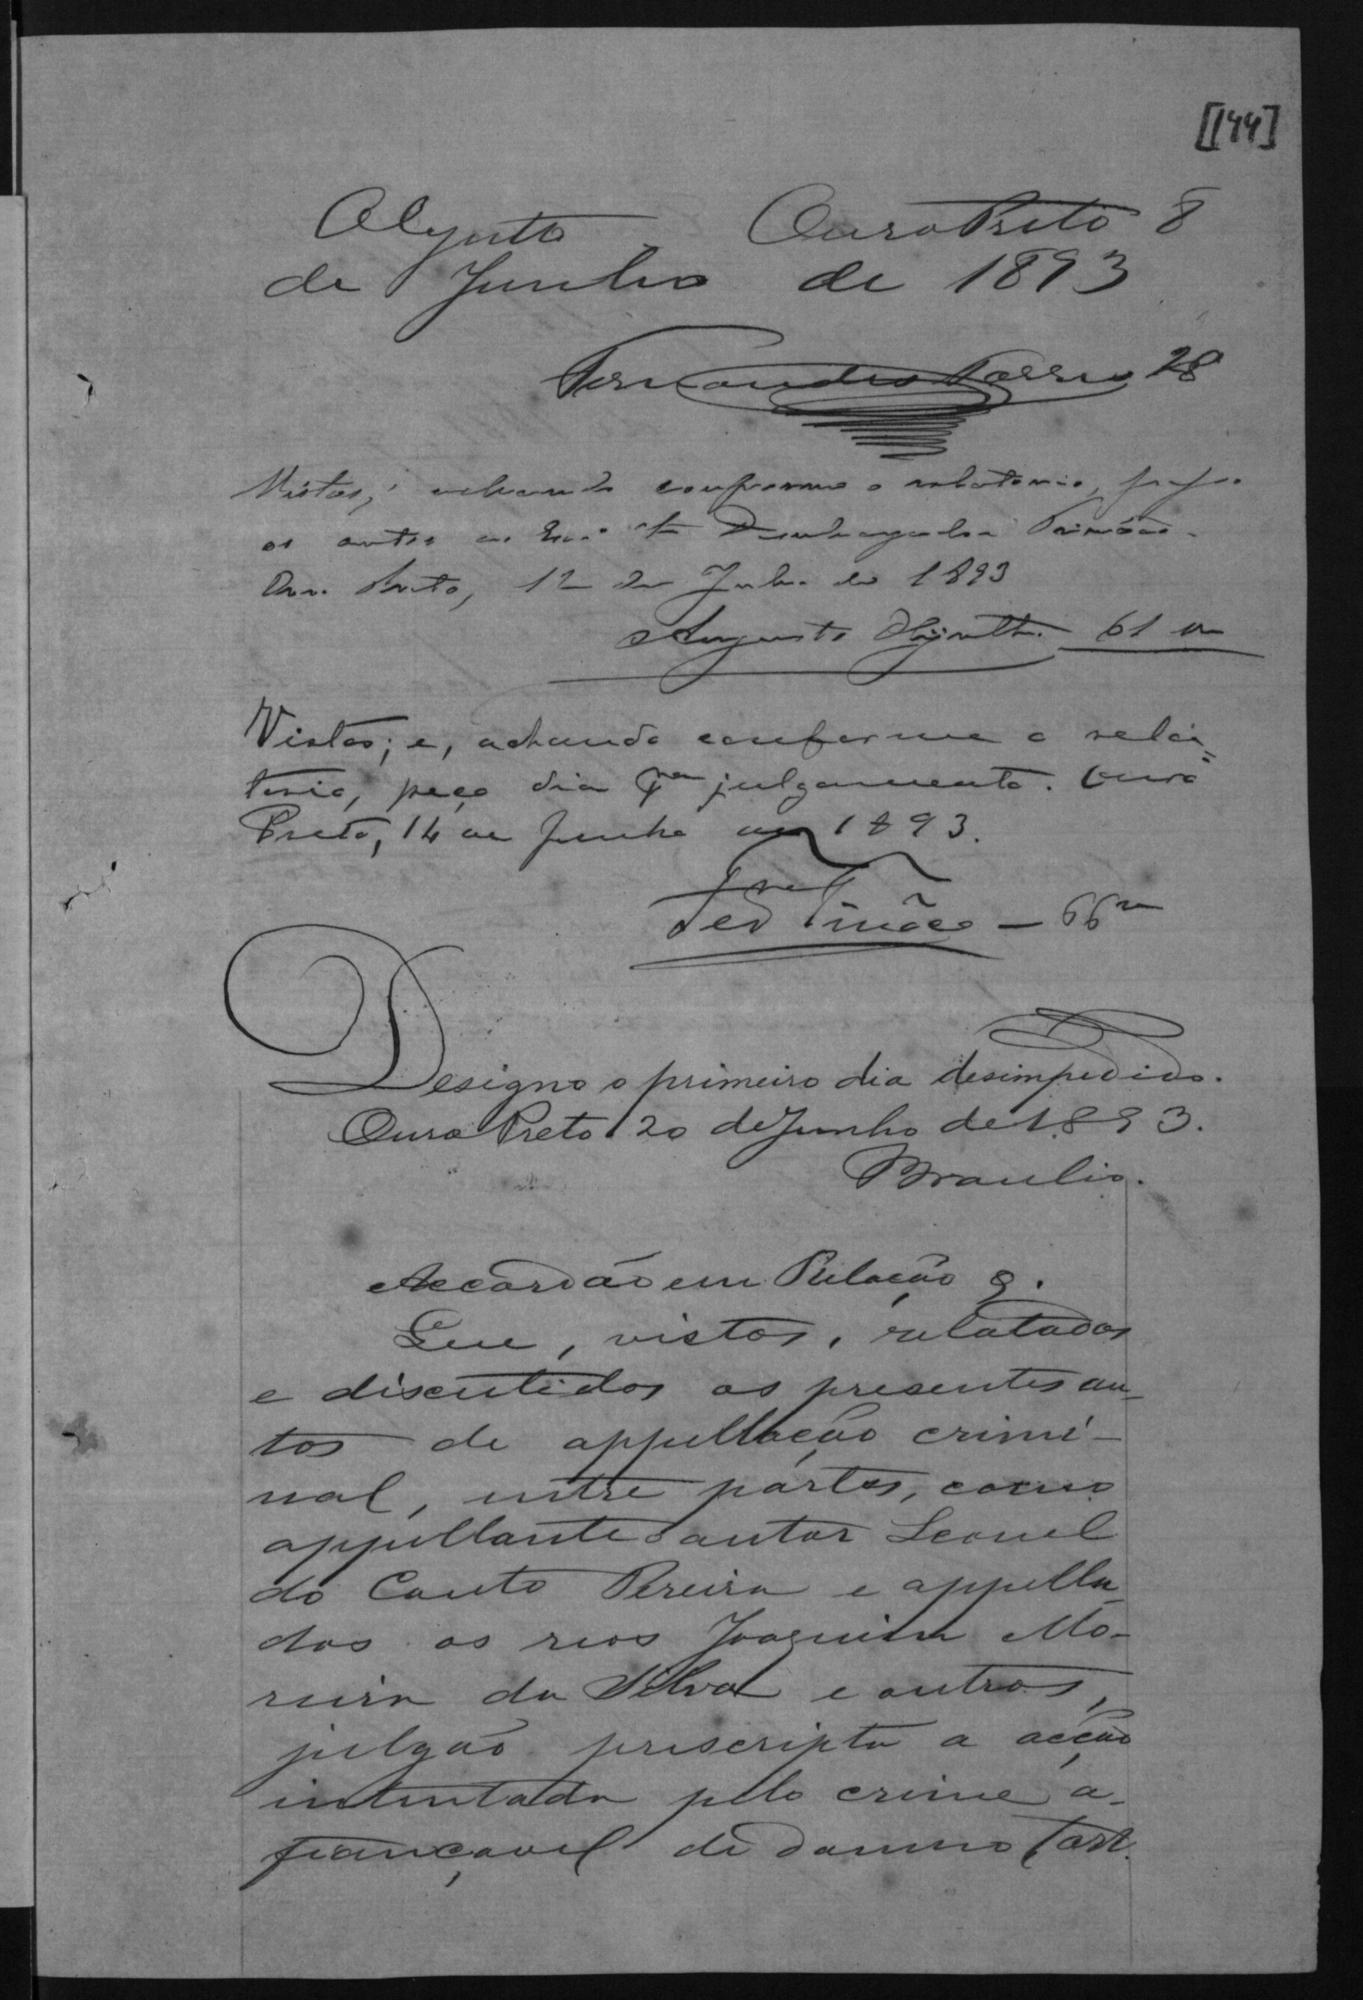 [144]
Olyntho Ouro Preto 8
de Junho de 1893
Fernandes Torres 28
Vistos, achando conforme o relatorio, passo
os autos ao Desembargador
Ouro Preto, 12 de Junho de 1893
Augusto Olyntho. 61
Vistos; e, achando conforme o rela=
torio, peço dia pra julgamento. Ouro
Preto, 14 de Junho de 1893.
Tinôco — 66
Designo o primeiro dia desimpedido.
Ouro Preto 20 de Junho de 1893.
Braulio.
Accordão em Relação &.
Que, vistos, relatados
e discutidos os presentes au-
tos de appellação crimi-
nal, entre partes, como
appellante o autor Leonel
do Couto Pereira e appella-
dos os reos Joaquim Mo-
reira da Silva e outros,
julgão prescripta a acção
intentada pelo crime a-
fiançavel de damno (art.